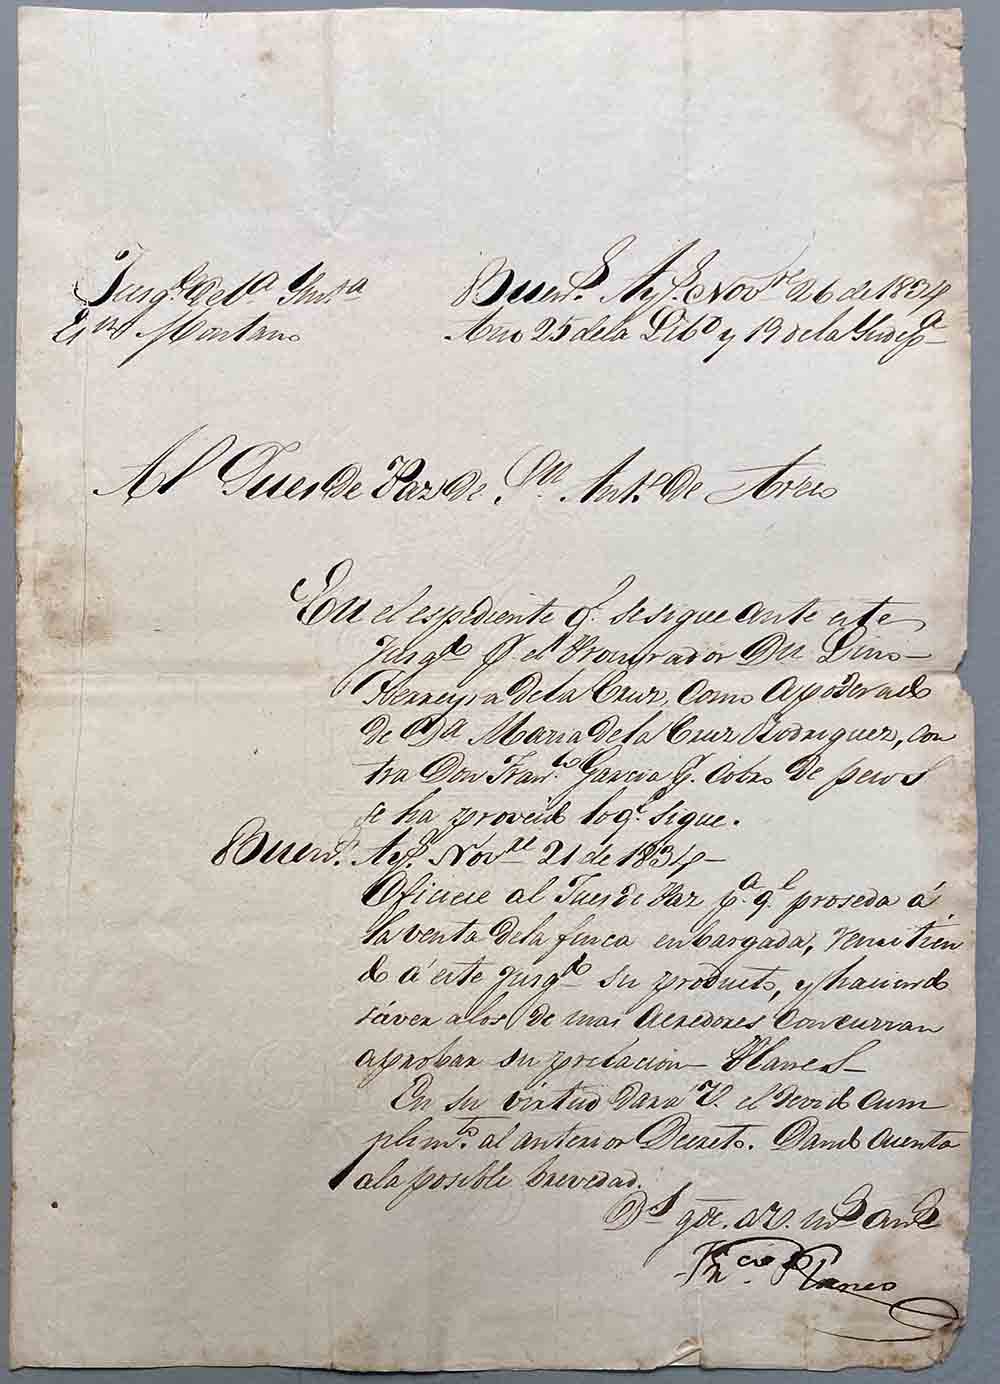 Juzg.do de 1.a Inst.a
Es.no Montano
Buen.s Ay.s Nov.re 26 de 1834
Año 25 de la Lib.d y 19 de la Indep.a
Al Jues de Paz de S.n Ant.o de Areco
En el espediente q.e se sigue ante este
Juzg.do p.r el Procurador D.n Lino
Herreyra de la Cruz, como apoderado
de D.a Maria de la Cruz Rodriguez, con
tra Don Fran.co Garcia p.r cobro de pesos
se ha proveido lo q.e sigue.
Buen.s Ay.s Nov.re 21 de 1834
Oficiese al Jues de Paz p.a q.e proseda á
la venta de la finca embargada, remitien
do á este juzg.do su producto, y haciendo
sáver a los de mas acredores concurran
aprobar su prelacion Planes
En su virtud dara V. el devido cum
plim.to al anterior Decreto. Dando cuenta
a la posible brevedad.
D.s gũe. a V. m.s an.s
Vi.cte Planes